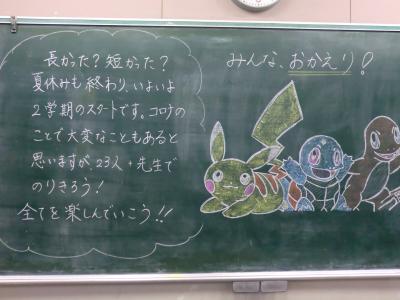 長かった?短かった?
夏休みも終わり、いよいよ
2学期のスタートです。コロナの
ことで大変なこともあると
思いますが23人+先生で
のりきろう!
全てを楽しんでいこう!!
みんな、おかえり!